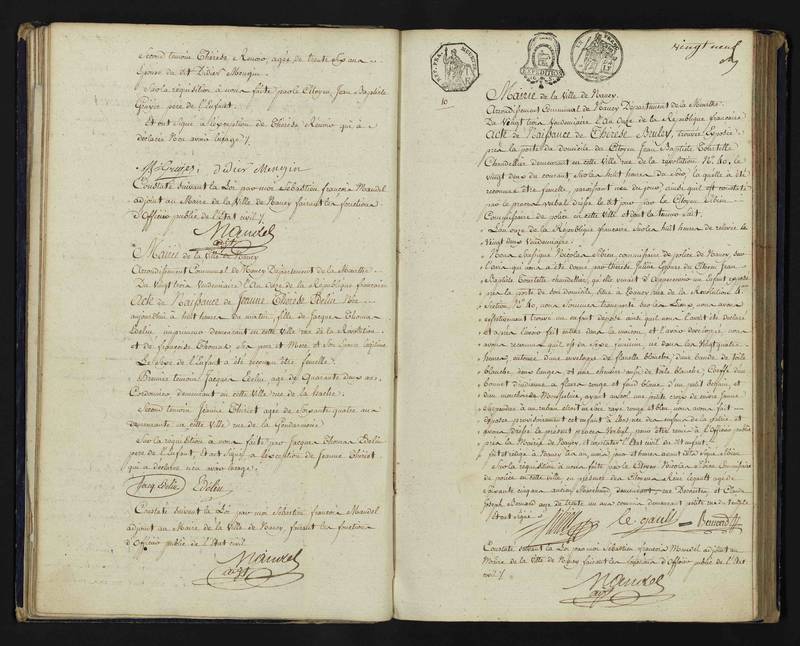 Second temoin Thérèse Renvio, agée de trente six ans
Epouse du dit Didier Mengin
Sur la réquisition à nous faite par le Citoyen Jean Baptiste
pere de l'Enfant.
Et ont signé à l'exception de Thérèse Renvio qui à
déclaré N'en avoir l'usage /.
Didier Mengin
Constaté suivant la Loi par moi Sébastien françois Mandel
adjoint au Maire de la Ville de Nancy faisant les fonctions
d'Officier public de l'Etat civil /.
Mandel
adjt
Mairie de la Ville de Nancy
Arrondissement Communal de Nancy Département de la Meurthe
Du Vingt trois Vendemiaire l'An Onze de la République française
Acte de Naissance de Jeanne Thérèse Née
aujourd'hui à huit heures du matin, fille de Jacques Thomas
demeurant en cette Ville rue de la Révolution
et de françoise Thomas Ses pere et Mere
Le Sexe de l'Enfant a été reconnu être femelle.
Premier temoin Jacques agé de Quarante deux ans
Cordonnier demeurant en cette Ville rue de la hache.
Second temoin Jeanne Thiriet agée de Soixante quatre ans
demeurante en cette Ville rue de la Gendarmerie
Sur la réquisition à nous faite par Jacques Thomas
pere de l'Enfant, et ont signé à l'exception de Jeanne Thiriet
qui a déclaré n'en avoir l'usage.
Constaté suivant la Loi par moi Sébastien françois Mandel
adjoint au Maire de la Ville de Nancy faisant les fonctions
d'Officier public de l'Etat civil.
Mandel
adjt
vingt neuf
16
Mairie de la Ville de Nancy.
Arrondissement Communal de Nancy Département de la Meurthe
Du Vingt trois Vendemiaire l'An Onze de la République française
Acte de Naissance de Thérèse Bruley, trouvée Exposée
près la porte du domicile du Citoyen Jean Baptiste
Chandellier demeurant en cette Ville rue de la révolution No. 40, le
vingt deux du courant sur les huit heures du Soir, laquelle à été
reconnue être femelle, paraissant née du jour, ainsi qu'il est constaté
par le procès verbal dressé le dit jour par le Citoyen
Commissaire de police en cette ville, et dont la teneur suit.
L'an onze de la République française sur les huit heures de relevée le
Vingt deux Vendemiaire.
Nous Soussigné Nicolas commissaire de police de Nancy, sur
l'avis qui nous a été donné par thérèse Epouse du Citoyen Jean
Baptiste chandellier, qu'elle venait d'appercevoir un Enfant exposé
près la porte de son domicile, située à Nancy rue de la Révolution 4e
section No. 40, nous sommes transporté sur les Lieux, nous avons
effectivement trouvé un enfant déposé ainsi que nous l'avait été déclaré
et après l'avoir fait entrer dans la maison et l'avoir développé, nous
avons reconnu qu'il est du Sexe féminin, né dans les Vingt quatre
heures, entouré d'une envelope de flanelle blanche, d'une bande de toile
blanche, deux langes et une chemise aussi de toile blanche; Coeffé d'un
bonnet d'indienne à fleurs rouge et fond blanc, d'un petit béguin, et
d'un mouchoir de Mousseline, ayant au cou une petite croix de cuivre jaune
suspendue à un ruban étroit en soie rayé rouge et bleu, nous avons fait
déposer provisoirement cet enfant à l'hospice des enfans de la patrie, et
avons dressé le présent procès Verbal, pour être remis à l'Officier public
près la Mairie de Nancy, et constater l'Etat civil de cet enfant.
fait et rédigé à Nancy les an, mois, jour et heures avant dits signé
Sur la réquisition à nous faite par le Citoyen Nicolas Commissaire
de police en cette ville, en présence des Citoyens Rene legault agé de
soixante cinq ans ancien Marchand, demeurant, rue et Claude
Joseph agé de trente un ans commis demeurant
Et ont signé
le gault
Constaté suivant la Loi par moi Sébastien françois Mandel adjoint au
Maire de la Ville de Nancy faisant les fonctions d'Officier public de l'Etat
civil /.
Mandel
adjt